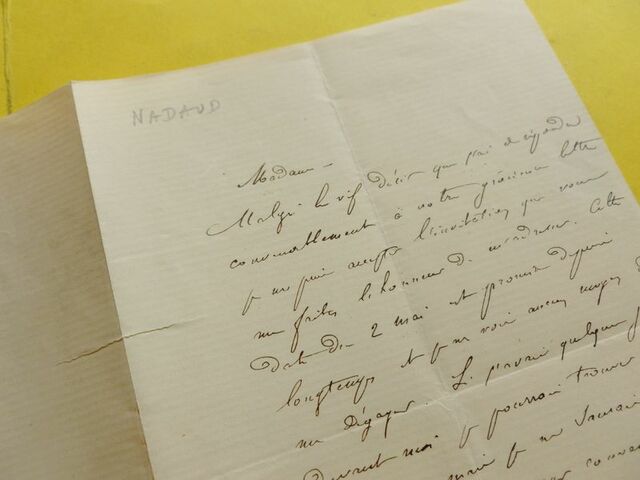 NADAUD
Madame
Malgré le vif désir que j'ai de répondre
convenablement à votre gracieuse lettre
je ne puis accepter l'invitation que vous
me faites l'honneur de m'adresser. Cette
Date du 2 mai est promise depuis
longtemps et je ne vois aucun moyen de
me dégager. Si j'avais quelque
Devant moi je pourrais trouver
mais je ne saurais